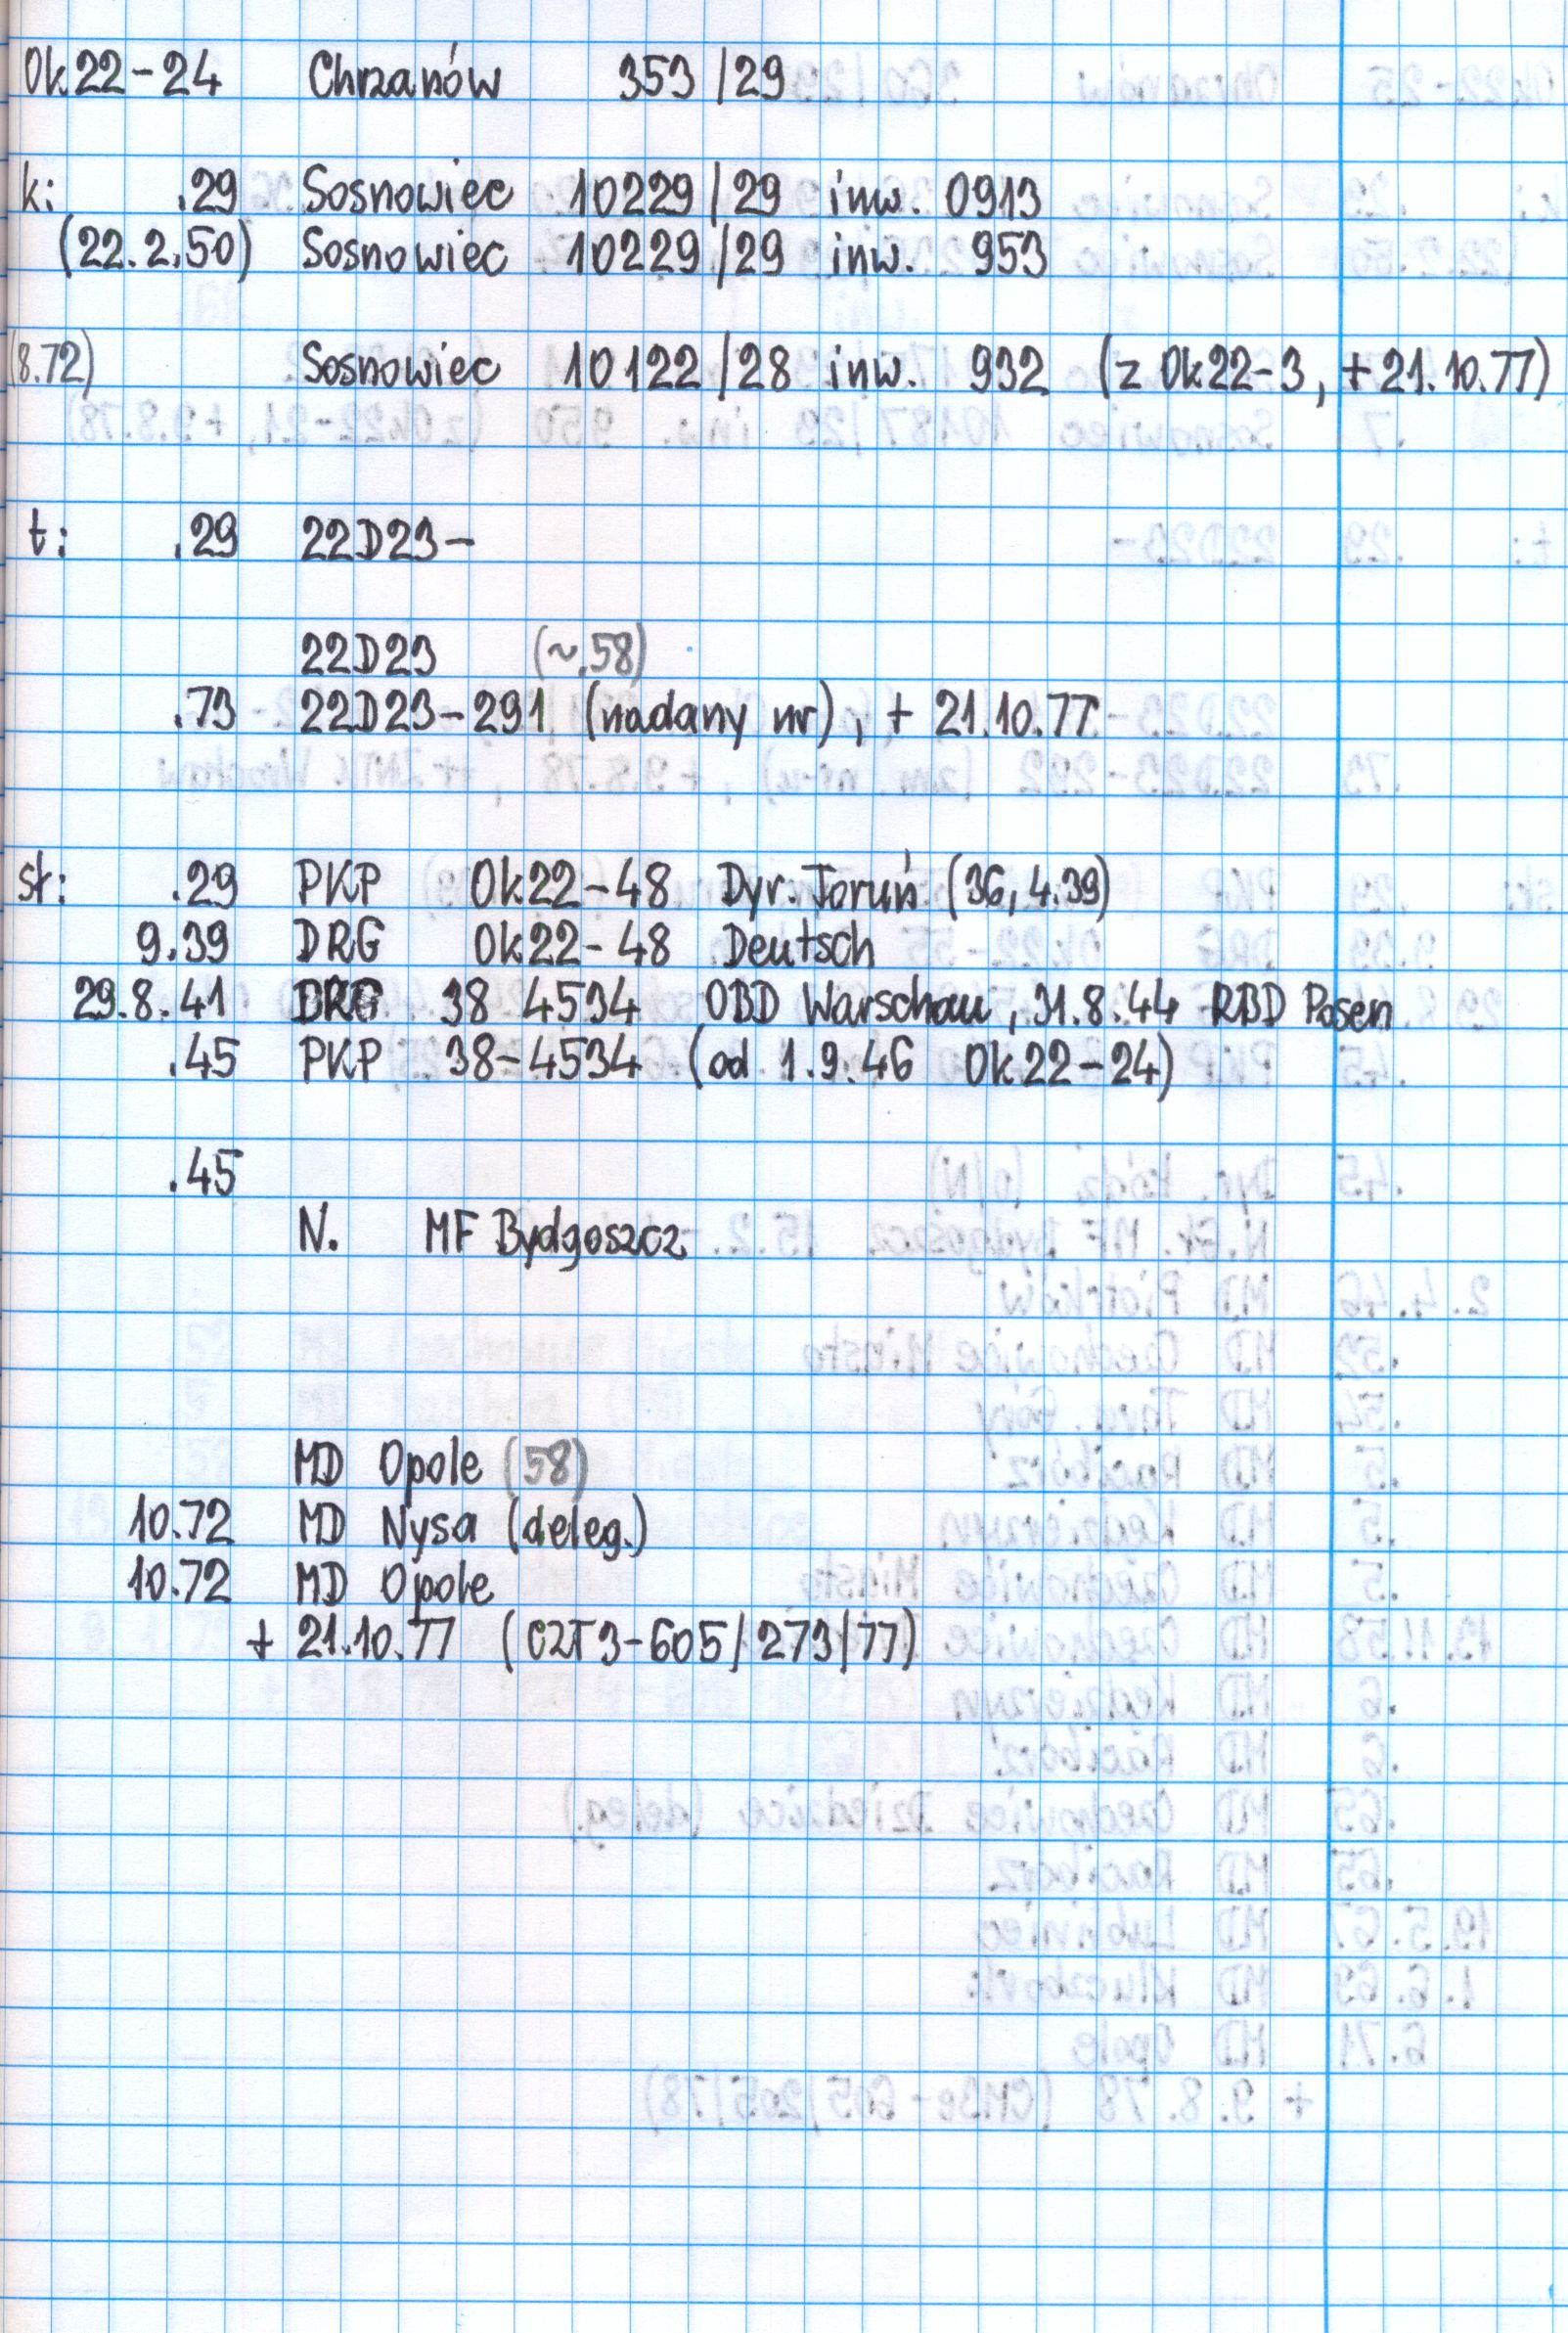 Ok22-24 Chrzanów 353/29
k: .29 Sosnowiec 10229/29 inw. 0913
(22.2.50) Sosnowiec 10229/29 inw. 953
(8.72) Sosnowiec 10122/28 inw. 932 (z Ok22-3, + 21.10.77)
t: .29 22D23-
22D23 (~.58)
.73 22D23-291 (nadany nr), + 21.10.77
sł: .29 PKP Ok22-48 Dyr. Toruń (36, 4.39)
9.39 DRG Ok22-48 Deutsch
29.8.41 DRG 38 4534 OBD Warschau, 31.8.44 RBD Posen
.45 PKP 38-4534 (od 1.9.46 Ok22-24)
.45
N. MF Bydgoszcz
MD Opole (58)
10.72 MD Nysa (deleg.)
10.72 MD Opole
+ 21.10.77 (CZT3-605/273/77)